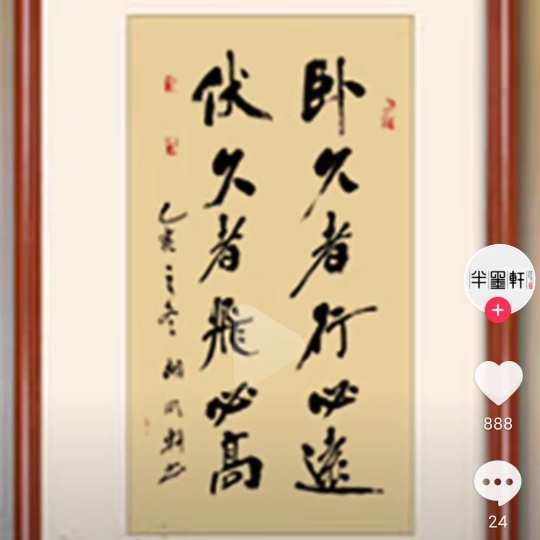 卧久者行必遠
伏久者飛必高
乙亥
半墨軒
888
24